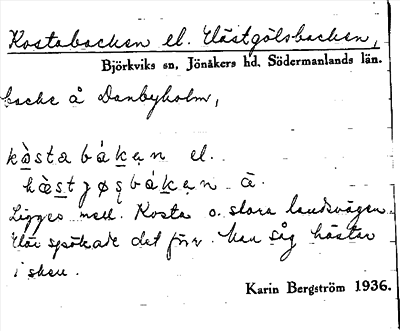 Kostabacken el. Hästgölsbacken,
Björkviks sn, Jönåkers hd, Södermanlands län.
backe å Danbyholm,
kòsta bákẹn el.
hæ̀stjøs̩bákẹn
Ligger mell. Kosta o. stora landsvägen.
Där spökade det förr. Man såg hästar
i sken.
Karin Bergström 1936.